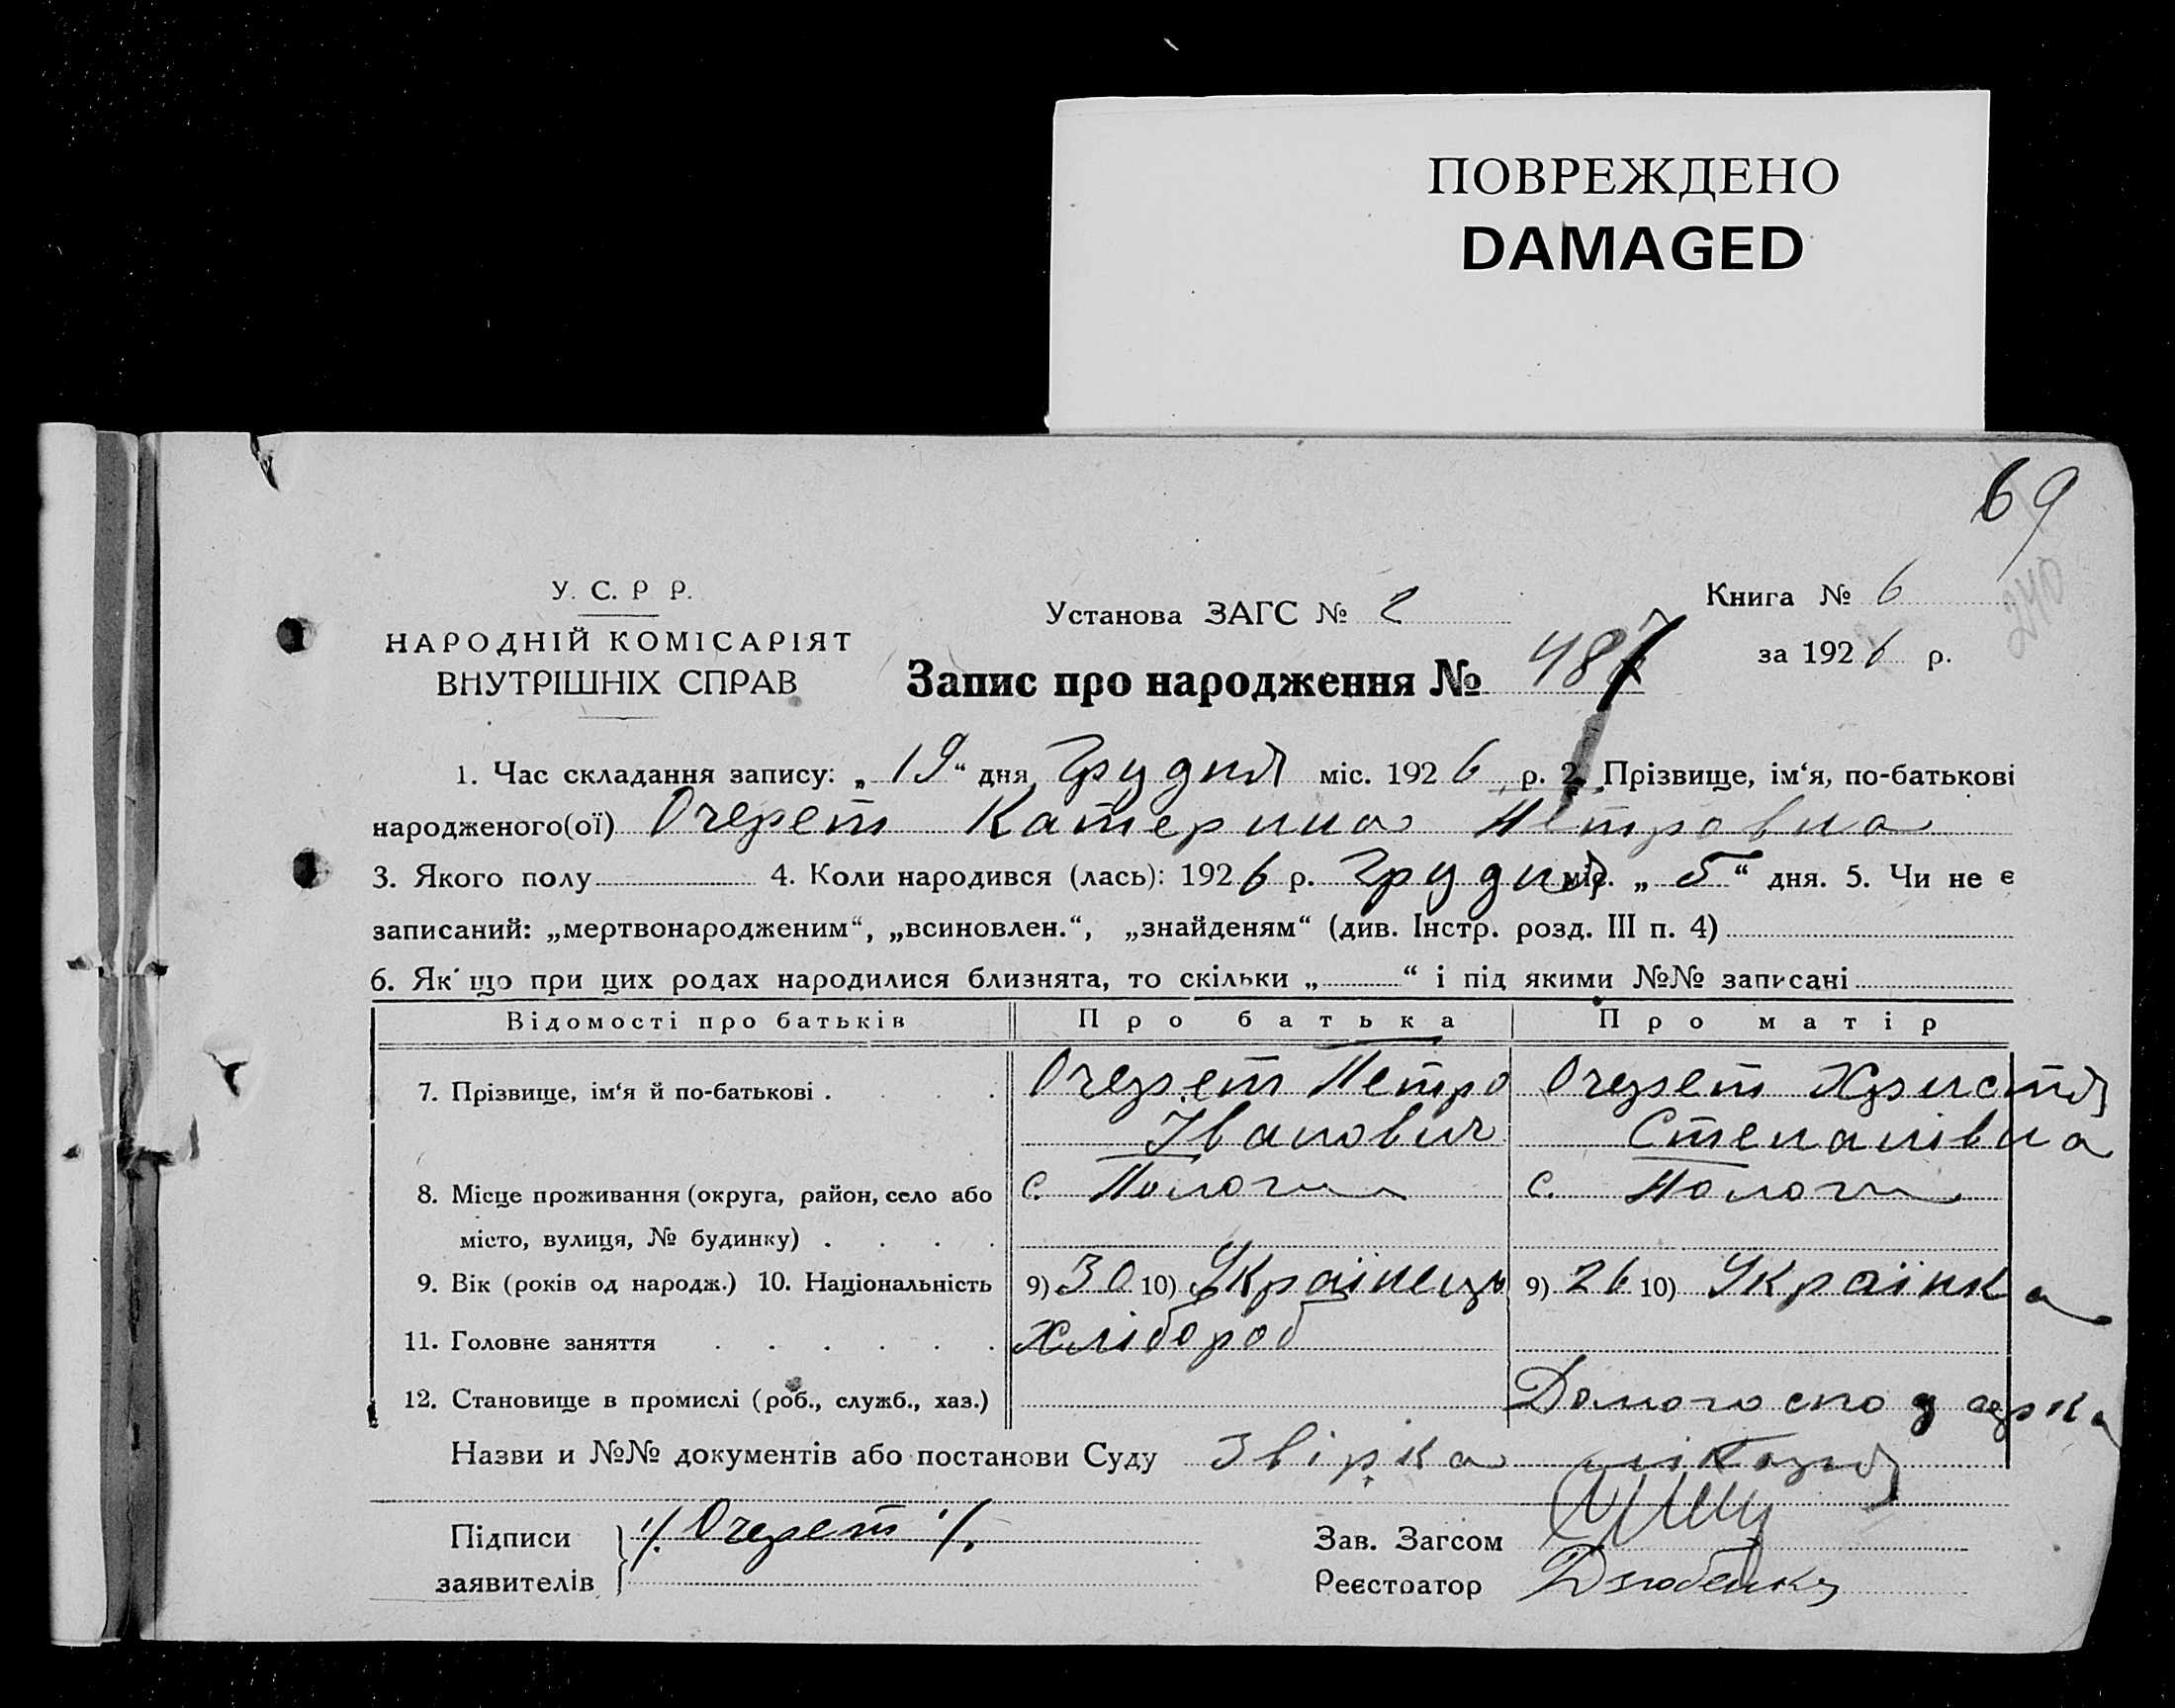 ПОВРЕЖДЕНО
DAMAGED
69
240
У. С. Р Р.
НАРОДНІЙ КОМІСАРІЯТ
ВНУТРІШНІХ СПРАВ
Установа ЗАГС № 2
Книга № 6
за 1926 р.
Запис про народження № 487
1. Час складання запису: „ 19 “ дня Грудня міс. 1926 р. 2. Прізвище, ім‘я, по-батькові
народженого(ої) Очерет Катерина Петровна
3. Якого полу 4. Коли народився (лась): 1926 р. Грудня міс. „ 5 “ дня. 5. Чи не є
записаний: „мертвонародженим“, „всиновлен.“, „знайденям“ (див. Інстр. розд. III п. 4)
6. Як що при цих родах народилися близнята, то скільки „ “ і під якими №№ записані
Відомості про батьків Про батька Про матір
7. Прізвище, ім‘я й по-батькові . . . . Очерет Петро Очерет Христя
Іванович Степанівна
8. Місце проживання (округа, район, село або с. Пологи с. Пологи
місто, вулиця, № будинку) . . . .
9. Вік (років од народж.) 10. Національність 9) 30 10) Українець 9) 26 10) Українка
11. Головне заняття . . . . . . Хлібороб
12. Становище в промислі (роб., служб., хаз.) Домогосподарка
Назви и №№ документів або постанови Суду Звірка
Підписи /. Очерет /.
заявителів
Зав. Загсом
Реєстратор Дзюбенко